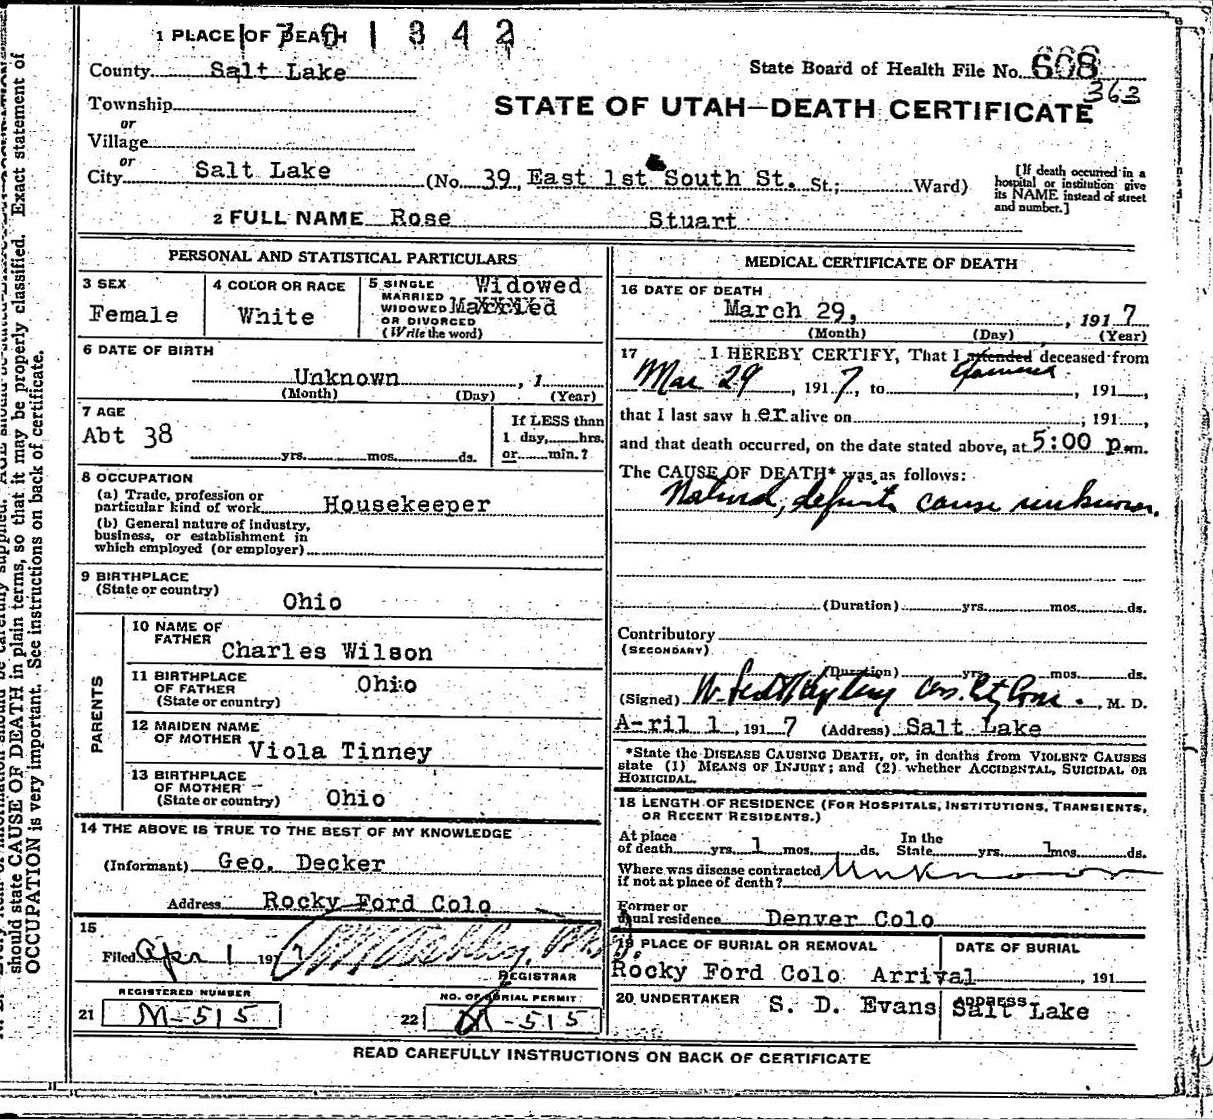 1 PLACE OF DEATH 1 7 0 1 3 4 2
County Salt Lake
State Board of Health File No. 608
363
Township
or
STATE OF UTAH—DEATH CERTIFICATE
Village
or
City Salt Lake (No. 39 East 1st South St. St.; Ward)
[If death occurred in a
hospital or institution give
its NAME instead of street
and number.]
2 FULL NAME Rose Stuart
PERSONAL AND STATISTICAL PARTICULARS
3 SEX
Female
4 COLOR OR RACE
White
5 SINGLE
MARRIED
WIDOWED
OR DIVORCED
(Write the word)
Widowed
Married
6 DATE OF BIRTH
Unknown , 1
(Month) (Day) (Year)
7 AGE
Abt 38
yrs. mos. ds.
If LESS than
1 day, hrs.
or min.?
8 OCCUPATION
(a) Trade, profession or
particular kind of work Housekeeper
(b) General nature of industry,
business, or establishment in
which employed (or employer)
9 BIRTHPLACE
(State or country)
Ohio
PARENTS
10 NAME OF
FATHER
Charles Wilson
11 BIRTHPLACE
OF FATHER
(State or country)
Ohio
12 MAIDEN NAME
OF MOTHER
Viola Tinney
13 BIRTHPLACE
OF MOTHER
(State or country)
Ohio
14 THE ABOVE IS TRUE TO THE BEST OF MY KNOWLEDGE
(Informant) Geo. Decker
Address Rocky Ford Colo
15
Filed Apr 1 1917
REGISTRAR
REGISTERED NUMBER
21 M-515
NO. OF BURIAL PERMIT
22 M-515
MEDICAL CERTIFICATE OF DEATH
16 DATE OF DEATH
March 29, , 1917
(Month) (Day) (Year)
17 I HEREBY CERTIFY, That I attended deceased from
Mar 29 , 1917, to , 191 ,
that I last saw her alive on ; 191 ,
and that death occurred, on the date stated above, at 5:00 p.m.
The CAUSE OF DEATH* was as follows:
Natural, definite cause unknown.
(Duration) yrs. mos. ds.
Contributory
(SECONDARY)
(Duration) yrs. mos. ds.
(Signed) , M. D.
A-ril 1 , 1917 (Address) Salt Lake
*State the DISEASE CAUSING DEATH, or, in deaths from VIOLENT CAUSES
state (1) MEANS OF INJURY; and (2) whether ACCIDENTAL, SUICIDAL OR
HOMICIDAL.
18 LENGTH OF RESIDENCE (FOR HOSPITALS, INSTITUTIONS, TRANSIENTS,
OR RECENT RESIDENTS.)
At place
of death yrs. 1 mos. ds.
In the
State yrs. 1 mos. ds.
Where was disease contracted
if not at place of death? Unknown
Former or
usual residence Denver Colo
19 PLACE OF BURIAL OR REMOVAL
Rocky Ford Colo
DATE OF BURIAL
Arrival , 191
20 UNDERTAKER S. D. Evans
ADDRESS
Salt Lake
READ CAREFULLY INSTRUCTIONS ON BACK OF CERTIFICATE
should state CAUSE OF DEATH in plain terms, so that it may be properly classified. Exact statement of
OCCUPATION is very important. See instructions on back of certificate.